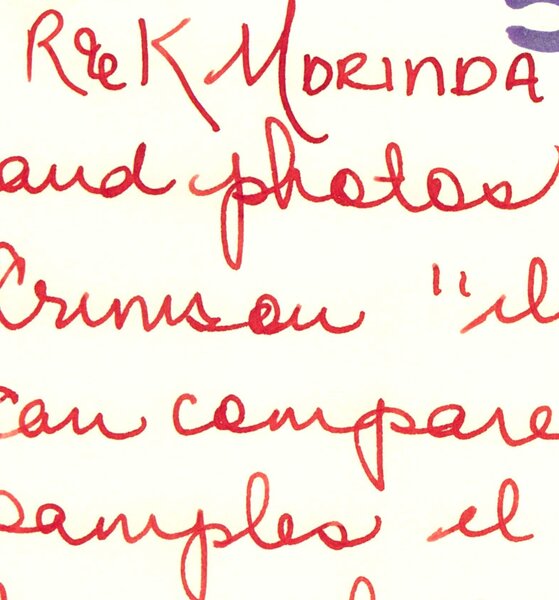 R&K MORINDA
and photos
Crimson "
can compare
samples